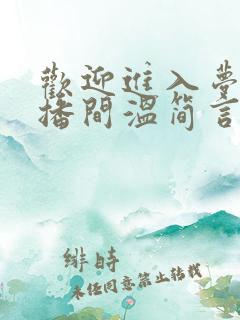 歡迎進入夢
播間溫简言
緋時
未任同意禁止转载